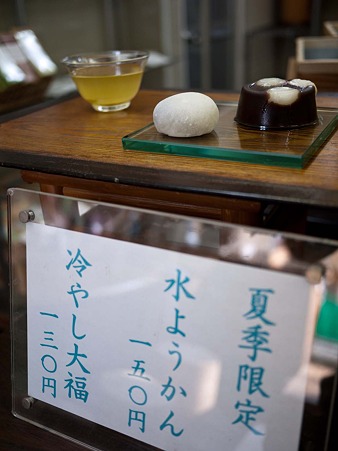 夏季限定
水ようかん
一五〇円
冷やし大福
一三〇円